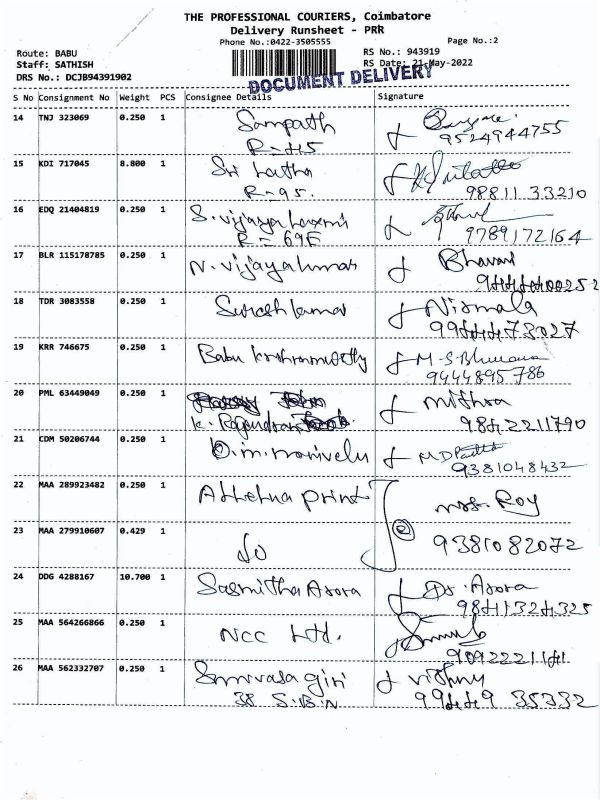 THE PROFESSIONAL COURIERS, Coimbatore
Delivery Runsheet - PRR
Phone No.:0422-3505555 Page No.:2
Route: BABU RS No.: 943919
Staff: SATHISH RS Date: 21-May-2022
DRS No.: DCJB94391902
DOCUMENT DELIVERY
S No Consignment No Weight PCS Consignee Details Signature
14 TNJ 323069 0.250 1 Sampath
R-45 9524944755
15 KDI 717045 8.800 1 Sri Latha
R-95. 98811 33210
16 EDQ 21404819 0.250 1 S. Vijaya Laxmi
R-69E 9789172164
17 BLR 115178785 0.250 1 N. Vijayakumar Bhavani
18 TDR 3083558 0.250 1 Suresh kumar Nirmala
9944473027
19 KRR 746675 0.250 1 Babu krishnamurthy M-S-Bhuvana
9444895786
20 PML 63449049 0.250 1 mithra
K. Rajendran 9842211790
21 CDM 50206744 0.250 1 D.m. manivelu M D
9381048432
22 MAA 289923482 0.250 1 print mrs. Roy
23 MAA 279910607 0.429 1 do 9381082072
24 DDG 4288167 10.700 1 Sasmitha Arora Dr. Arora
98411324325
25 MAA 564266866 0.250 1 NCC Ltd.
9092221141
26 MAA 562332707 0.250 1 Srinivasa giri vishny
38 S.B.N 99449 35332